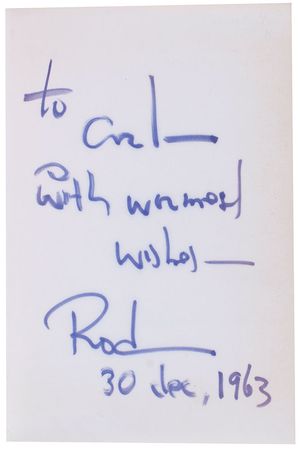 to
Carl—
with warmest
wishes—
Rod
30 dec, 1963